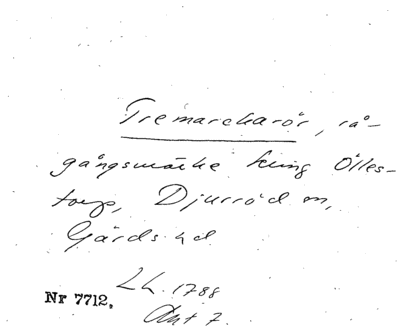 Tremarckarör, rå-
gångsmärke kring Ölles-
torp, Djurröd sn,
Gärds hd
LK. 1788
Nr 7712.
Akt 7.